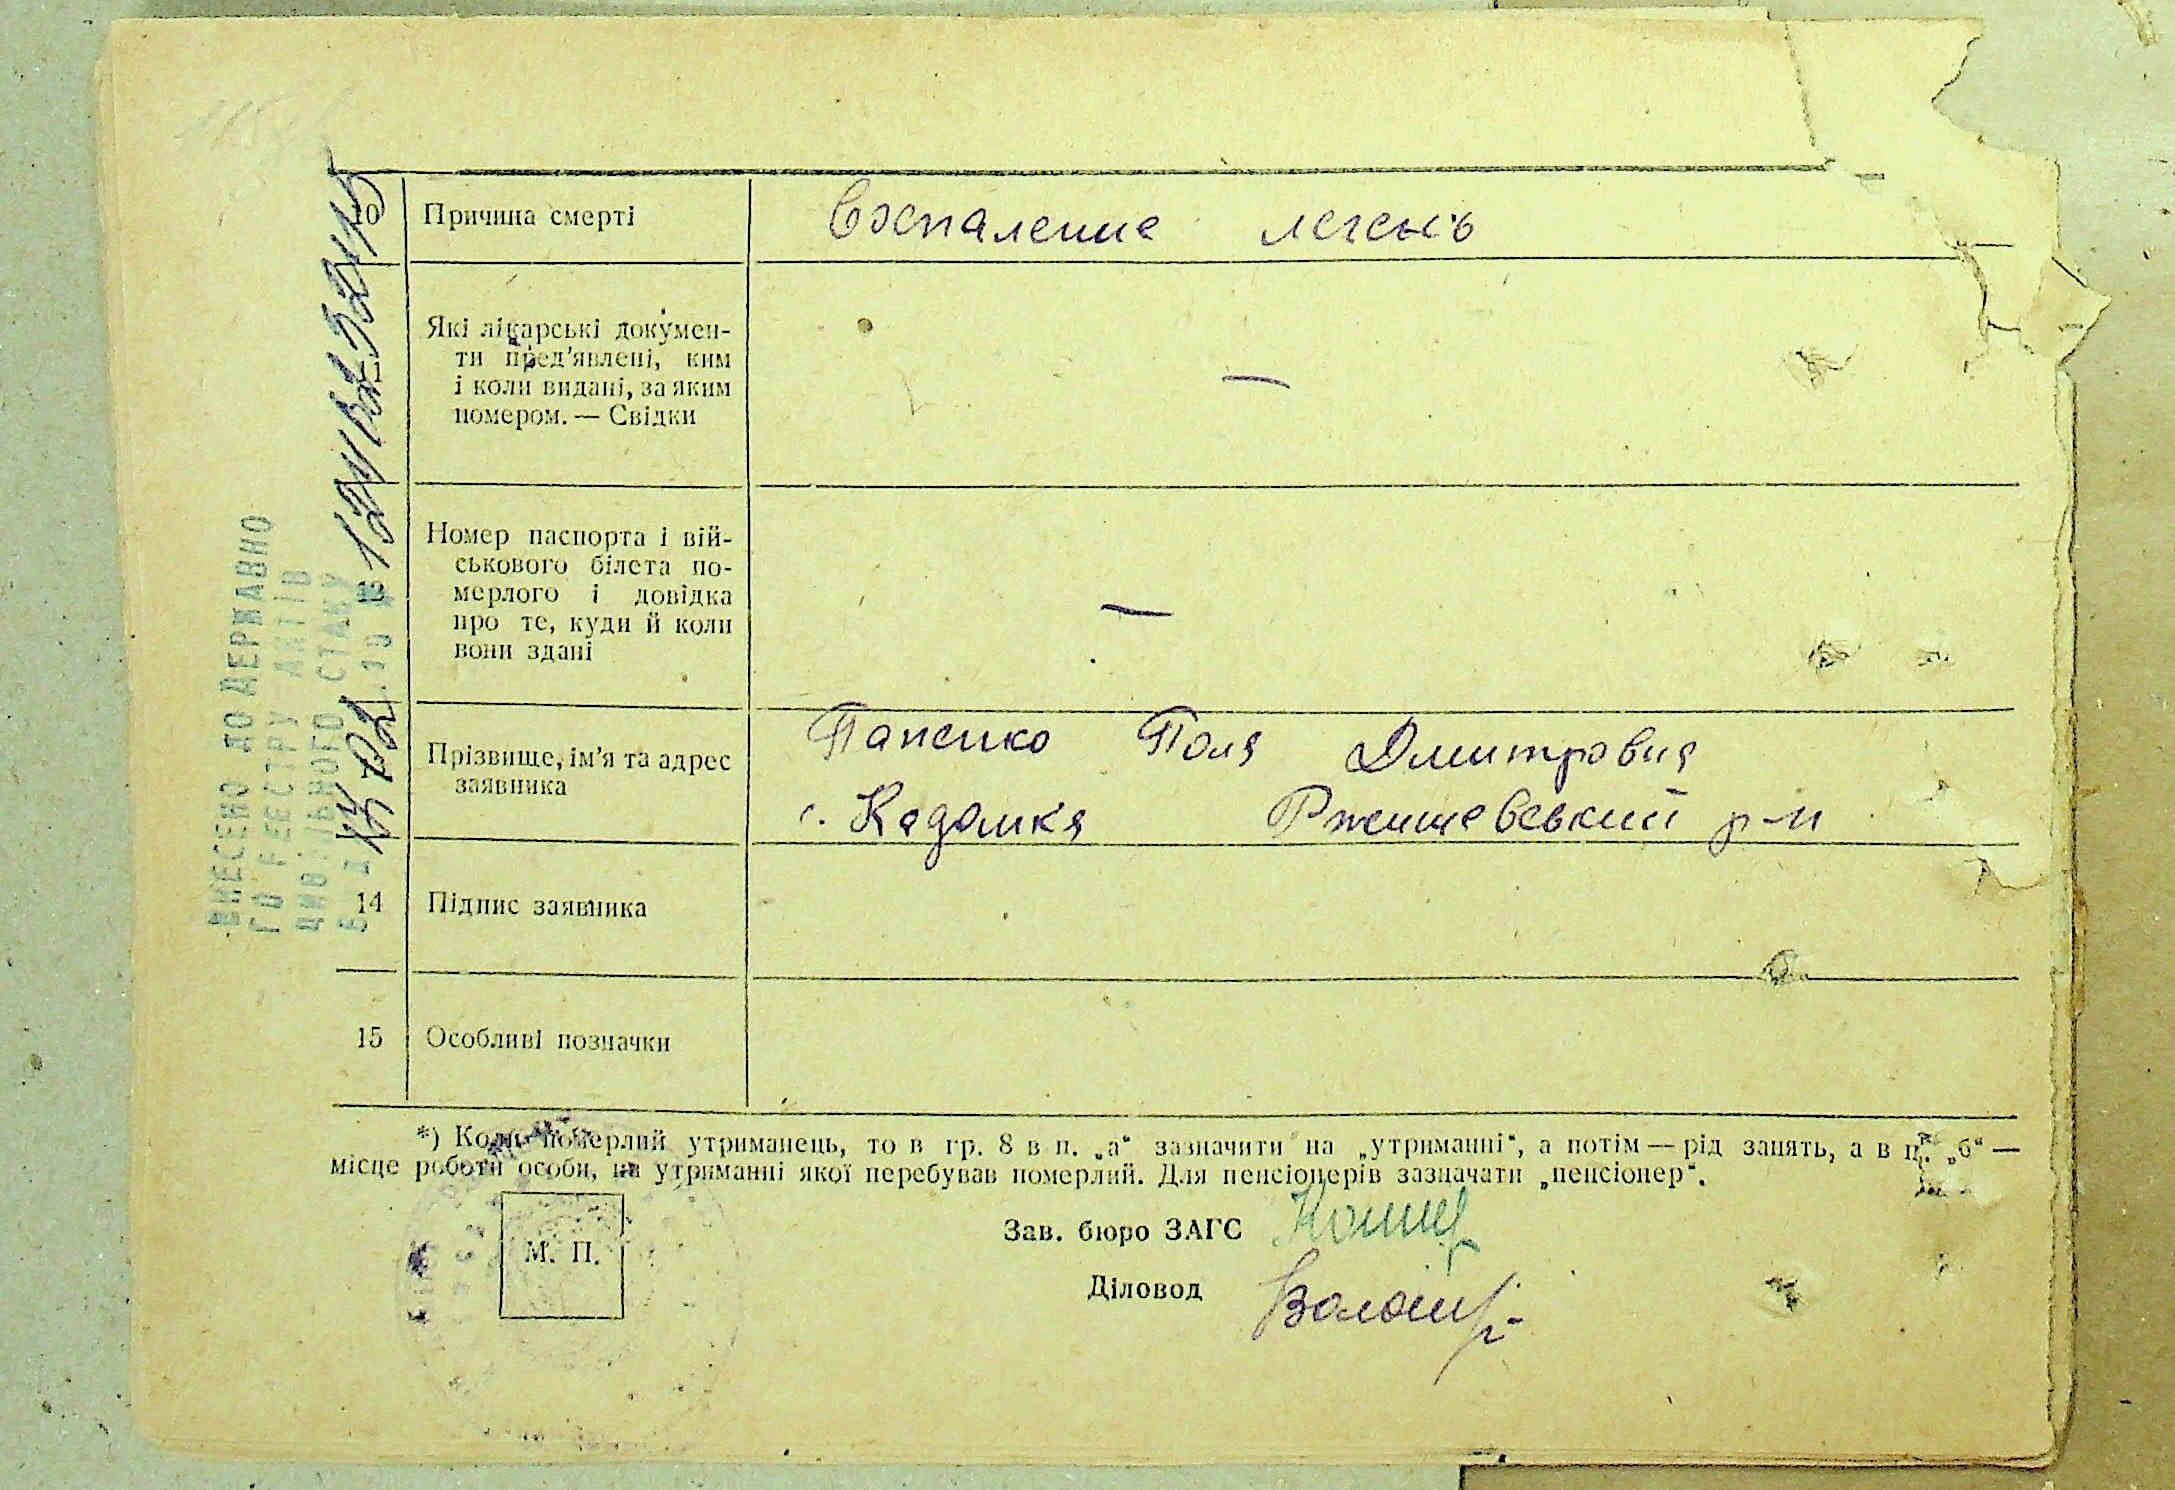 10 Причина смерті Воспаление легень
Які лікарські докумен-
ти пред'явлені, ким
і коли видані, за яким
номером. — Свідки
—
12 Номер паспорта і вій-
ськового білета по-
мерлого і довідка
про те, куди й коли
вони здані
—
Прізвище, ім'я та адрес
заявника
Папенко Поля Дмитровна
с. Кадомка Ржищевський р-н
14 Підпис заявника
15 Особливі позначки
*) Коли померлий утриманець, то в гр. 8 в п. „а“ зазначити на „утриманні“, а потім — рід занять, а в п. „б“ —
місце роботи особи, на утриманні якої перебував померлий. Для пенсіонерів зазначати „пенсіонер“.
Зав. бюро ЗАГС
М. П.
Діловод
ВНЕСЕНО ДО ДЕРЖАВНО
ГО РЕЄСТРУ АКТІВ
ЦИВІЛЬНОГО СТАНУ